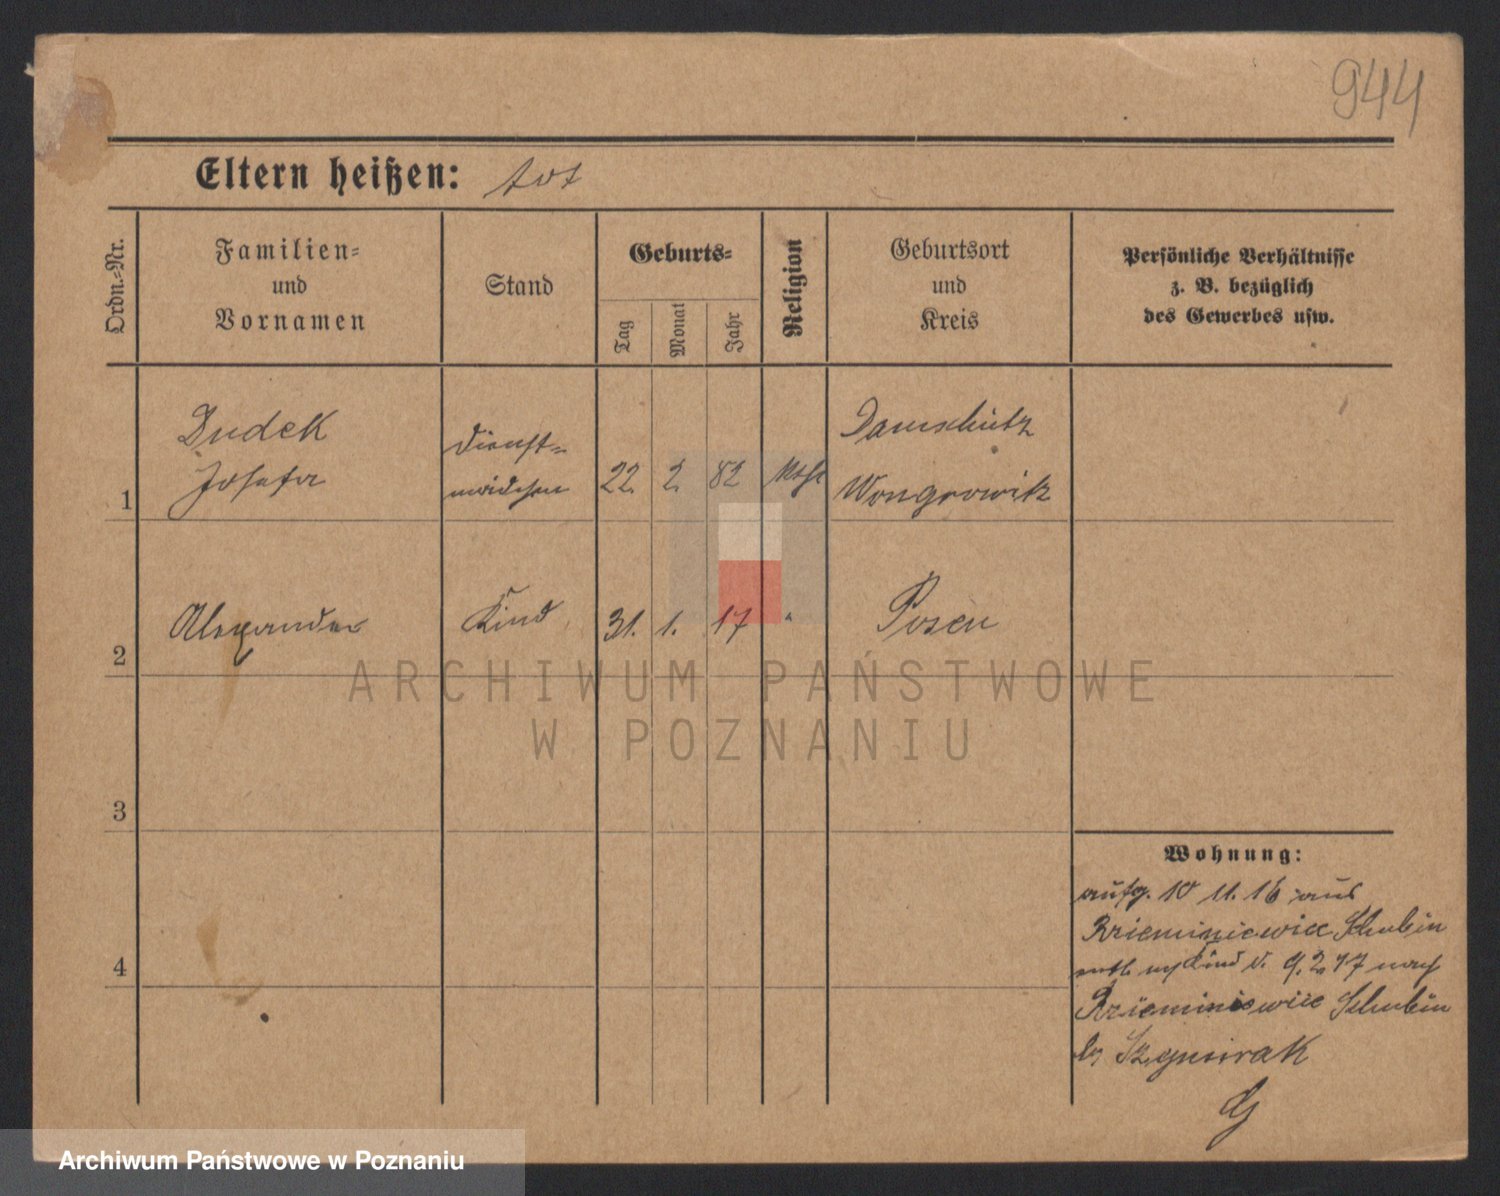 944
Eltern heißen: tot
Ordn.-Nr.
Familien-
und
Vornamen
Stand
Geburts-
Tag
Monat
Jahr
Religion
Geburtsort
und
Kreis
Persönliche Verhältnisse
z. B. bezüglich
des Gewerbes usw.
1
Dudek
Josefa
Dienst-
mädchen
22. 2. 82
kath
Damschütz
Wongrowitz
2
Alexander
Kind
31. 1. 17
"
Posen
3
4
Wohnung:
aufg. 10 11. 16 aus
Schubin
Kind 9.2.17 nach
Schubin
G
ARCHIWUM PAŃSTWOWE
W POZNANIU
Archiwum Państwowe w Poznaniu